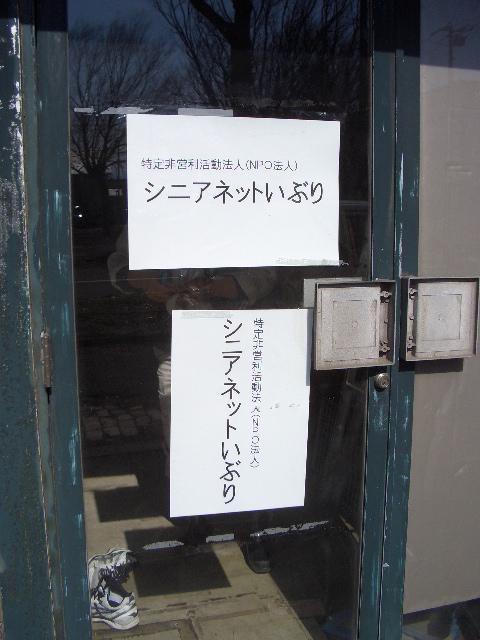 特定非営利活動法人(NPO法人)
シニアネットいぶり
特定非営利活動法人(NPO法人)
シニアネットいぶり